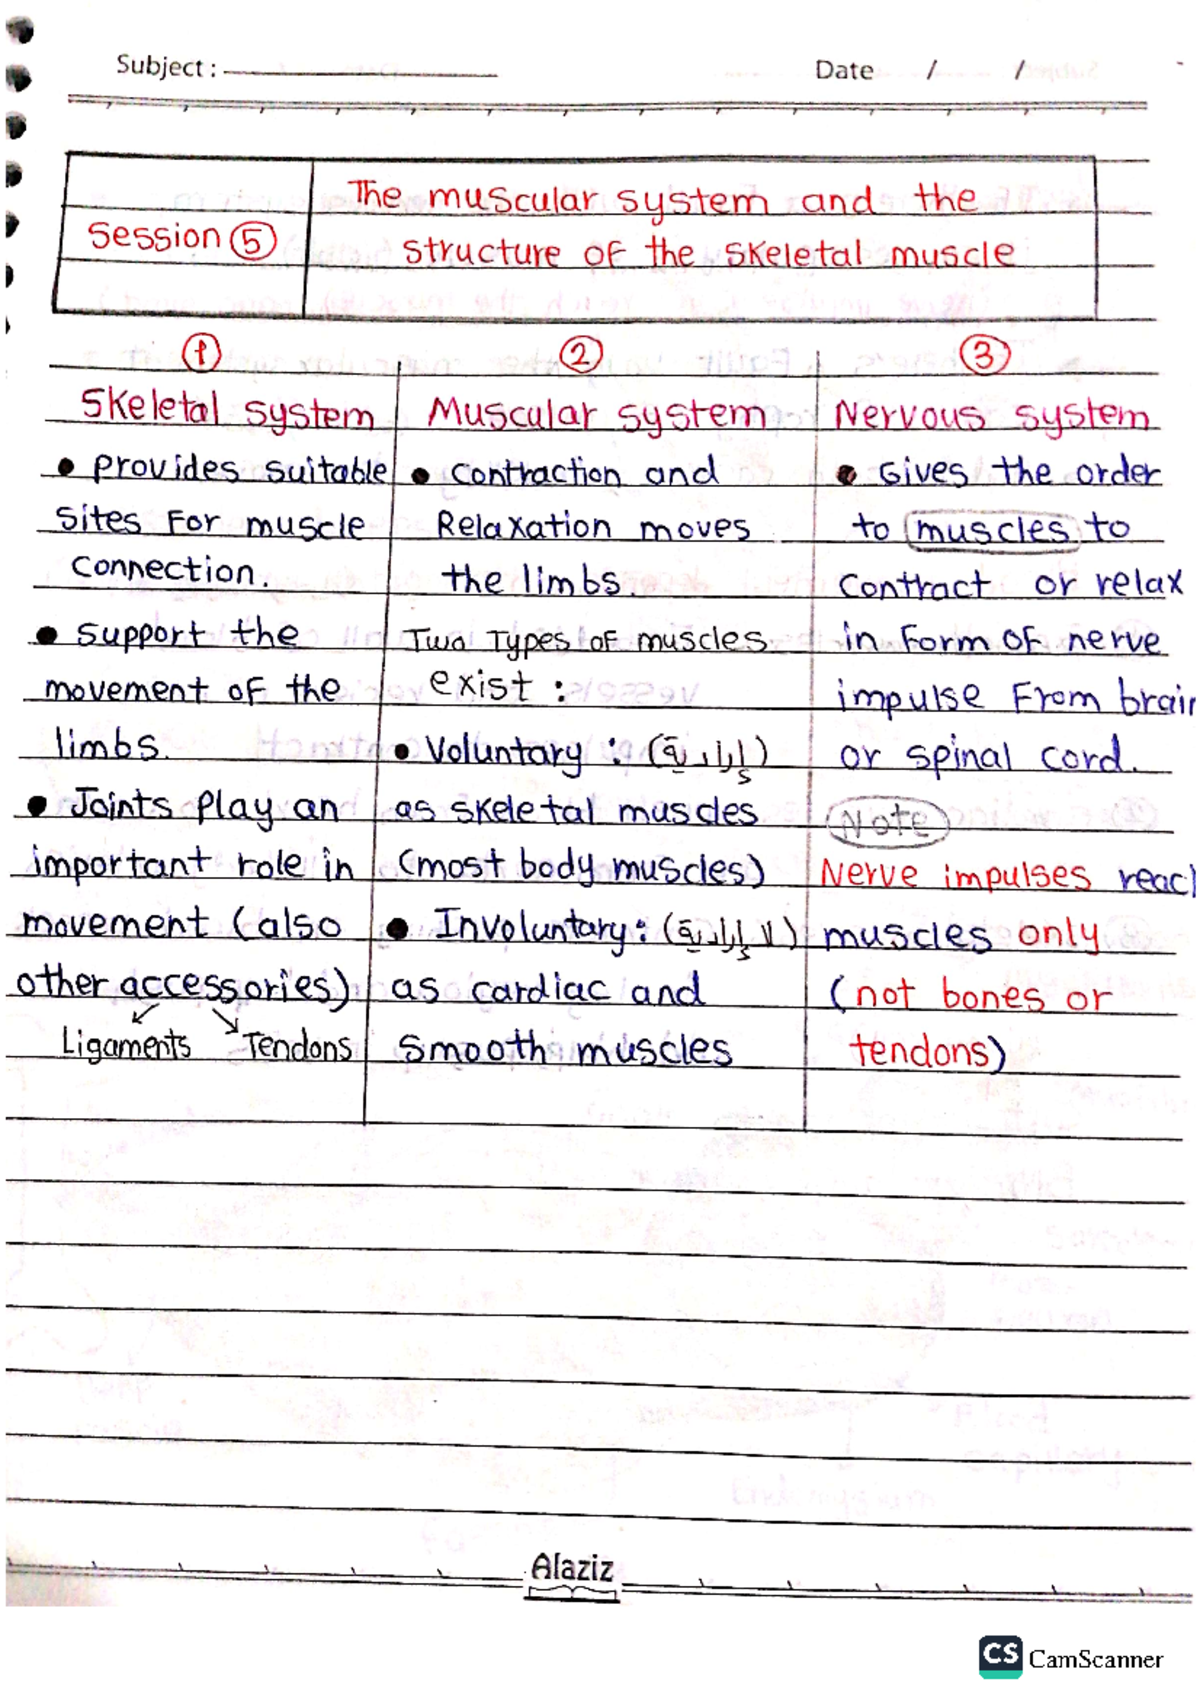 Subject :
Date / /
Session ⑤
The muscular system and the
structure of the skeletal muscle
①
Skeletal system
• provides suitable
sites for muscle
connection
• support the
movement of the
limbs.
• Joints play an
important role in
movement (also
other accessories)
Ligaments Tendons
②
Muscular system
• contraction and
Relaxation moves
the limbs.
Two Types of muscles
exist :
• Voluntary : (إرادية)
as skeletal muscles
(most body muscles)
• Involuntary : (لا إرادية)
as cardiac and
smooth muscles
③
Nervous system
• Gives the order
to muscles to
contract or relax
in form of nerve
impulse from brain
or spinal cord.
Note
Nerve impulses reach
muscles only
(not bones or
tendons)
Alaziz
CS CamScanner